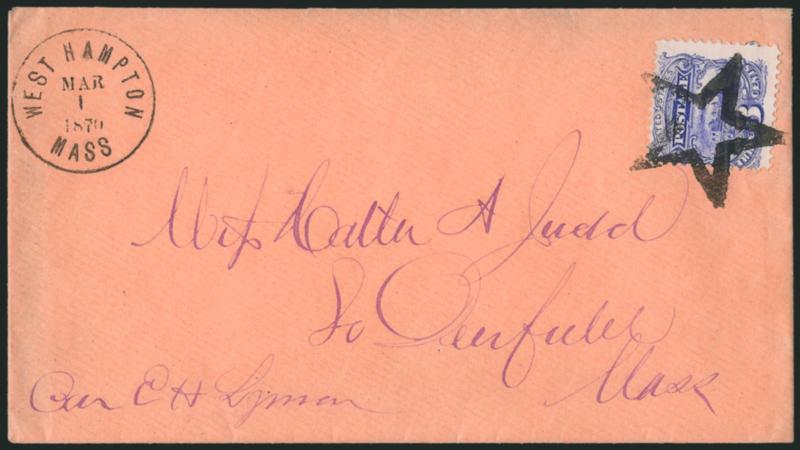 WEST HAMPTON
MAR
1
1870
MASS
POSTAGE
3
Miss Hattie A Judd
So Deerfield
Mass
Care E H Lyman